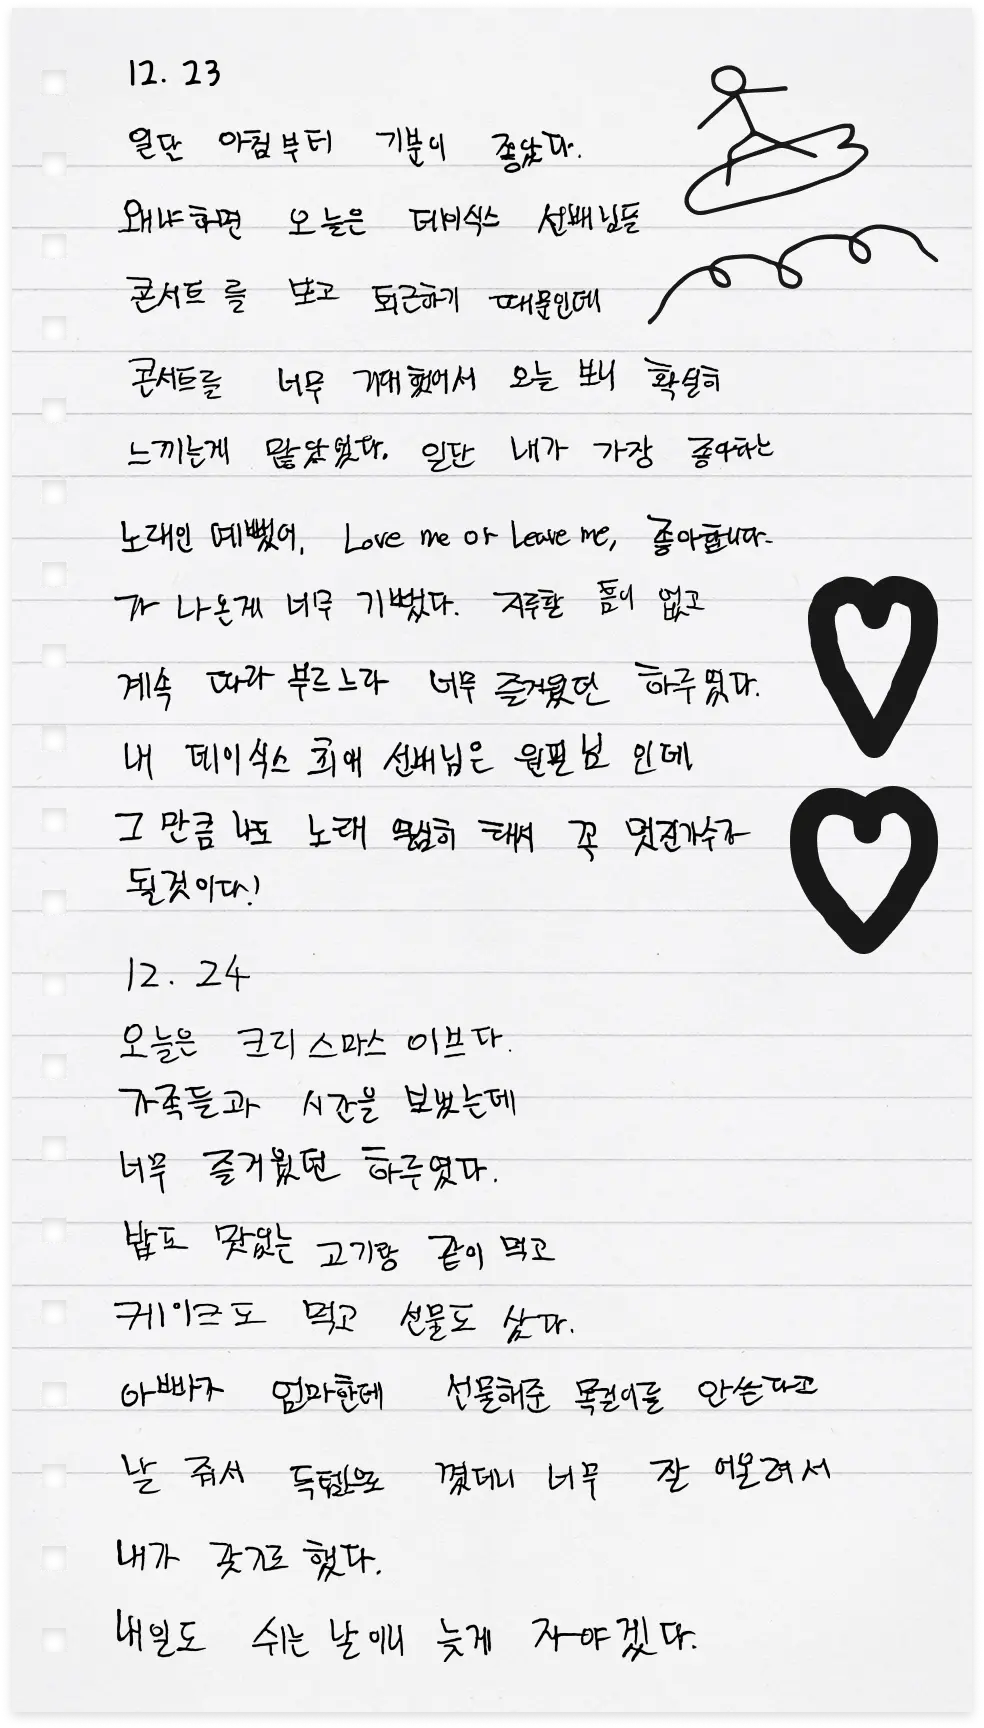 12. 23
일단 아침부터 기분이 좋았다.
왜냐하면 오늘은 데이식스 선배님들
콘서트를 보고 퇴근하기 때문인데
콘서트를 너무 기대했어서 오늘 보니 확실히
느끼는게 많았었다. 일단 내가 가장 좋아하는
노래인 예뻤어, Love me or Leave me, 좋아합니다
가 나온게 너무 기뻤다. 지루할 틈이 없고
계속 따라 부르느라 너무 즐거웠던 하루였다.
내 데이식스 최애 선배님은 원필님 인데
그만큼 나도 노래 열심히 해서 꼭 멋진가수가
될것이다!
12. 24
오늘은 크리스마스 이브다.
가족들과 시간을 보냈는데
너무 즐거웠던 하루였다.
밥도 맛있는 고기랑 같이 먹고
케이크도 먹고 선물도 샀다.
아빠가 엄마한테 선물해준 목걸이를 안쓴다고
날 줘서 득템으로 꼈더니 너무 잘 어울려서
내가 갖기로 했다.
내일도 쉬는 날이니 늦게 자야겠다.